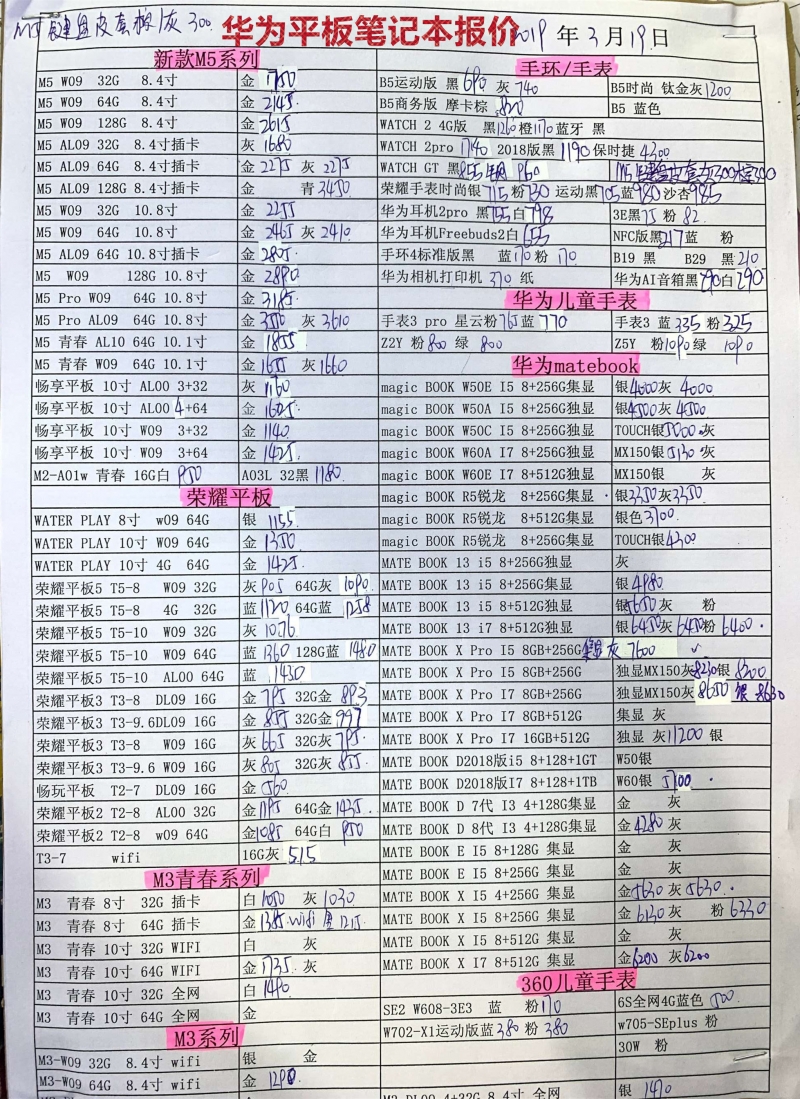 M5键盘皮套棕/灰300
华为平板笔记本报价2019年3月19日
新款M5系列
M5 W09 32G 8.4寸 金 1750
M5 W09 64G 8.4寸 金 2145
M5 W09 128G 8.4寸 金 2615
M5 AL09 32G 8.4寸插卡 灰 1680
M5 AL09 64G 8.4寸插卡 金 2275 灰 2275
M5 AL09 128G 8.4寸插卡 金 青3450
M5 W09 32G 10.8寸 金 2255
M5 W09 64G 10.8寸 金 2465 灰 2410
M5 AL09 64G 10.8寸插卡 金 2805
M5 W09 128G 10.8寸 金 2890
M5 Pro W09 64G 10.8寸 金 3185
M5 Pro AL09 64G 10.8寸 金 3550 灰 3610
M5 青春 AL10 64G 10.1寸 金 1855
M5 青春 W09 64G 10.1寸 金 1655 灰1660
畅享平板 10寸 AL00 3+32 灰 1160
畅享平板 10寸 AL00 4+64 金 1605
畅享平板 10寸 W09 3+32 金 1140
畅享平板 10寸 W09 3+64 金 1425
M2-A01w 青春 16G白 950 A03L 32黑 1180
荣耀平板
WATER PLAY 8寸 w09 64G 银 1155
WATER PLAY 10寸 W09 64G 金 1350
WATER PLAY 10寸 4G 64G 金 1425
荣耀平板5 T5-8 W09 32G 灰905 64G灰 1090
荣耀平板5 T5-8 4G 32G 蓝1120 64G蓝 1258
荣耀平板5 T5-10 W09 32G 灰 1076
荣耀平板5 T5-10 W09 64G 蓝 1360 128G蓝 1480
荣耀平板5 T5-10 AL00 64G 蓝 1430
荣耀平板3 T3-8 DL09 16G 金 795 32G金 893
荣耀平板3 T3-9.6DL09 16G 金 855 32G金 997
荣耀平板3 T3-8 W09 16G 灰665 32G灰 795
荣耀平板3 T3-9.6 W09 16G 灰 805 32G灰 855
畅玩平板 T2-7 DL09 16G 金 560
荣耀平板2 T2-8 AL00 32G 金1195 64G金1435
荣耀平板2 T2-8 w09 64G 金1085 64G白 950
T3-7 wifi 16G灰 515
M3青春系列
M3 青春 8寸 32G 插卡 白 1050 灰 1030
M3 青春 8寸 64G 插卡 金1385 wifi 1215
M3 青春 10寸 32G WIFI 白 灰
M3 青春 10寸 64G WIFI 金 1735 灰
M3 青春 10寸 32G 全网 白 1490
M3 青春 10寸 64G 全网 金
M3系列
M3-W09 32G 8.4寸 wifi 银 金
M3-W09 64G 8.4寸 wifi 金 1290
手环/手表
B5运动版 黑 690 灰 740 B5时尚 钛金灰1200
B5商务版 摩卡棕 820 B5 蓝色
WATCH 2 4G版 黑1260橙1170蓝牙 黑
WATCH 2pro 1740 2018版黑 1190保时捷 4300
WATCH GT 黑855 960
荣耀手表时尚银715粉730 运动黑705蓝980沙杏985
华为耳机2pro 黑755白798 3E黑75 粉 82
华为耳机Freebuds2白 655 NFC版黑217蓝 粉
手环4标准版黑 蓝170 粉 170 B19 黑 B29 黑 210
华为相机打印机 370 纸 华为AI音箱黑290白290
华为儿童手表
手表3 pro 星云粉765蓝 770 手表3 蓝 335 粉325
Z2Y 粉 800 绿 800 Z5Y 粉1090绿 1090
华为matebook
magic BOOK W50E I5 8+256G集显 银4000灰 4000
magic BOOK W50A I5 8+256G独显 银4500灰 4500
magic BOOK W50C I5 8+256G独显 TOUCH银5000灰
magic BOOK W60A I7 8+256G独显 MX150银5130灰
magic BOOK W60E I7 8+512G独显 MX150银 灰
magic BOOK R5锐龙 8+256G集显 银3350灰3350
magic BOOK R5锐龙 8+512G集显 银色3700
magic BOOK R5锐龙 8+256G集显 TOUCH银4300
MATE BOOK 13 i5 8+256G独显 灰
MATE BOOK 13 i5 8+256G集显 银 4980
MATE BOOK 13 i5 8+512G独显 银5650灰 粉
MATE BOOK 13 i7 8+512G独显 银6450灰6450粉 6400
MATE BOOK X Pro I5 8GB+256G集显 灰 7600
MATE BOOK X Pro I5 8GB+256G 独显MX150灰8230银 8300
MATE BOOK X Pro I7 8GB+256G 独显MX150灰 8650 银 8630
MATE BOOK X Pro I7 8GB+512G 集显 灰
MATE BOOK X Pro I7 16GB+512G 独显 灰11200 银
MATE BOOK D2018版i5 8+128+1GT W50银
MATE BOOK D2018版I7 8+128+1TB W60银 5700
MATE BOOK D 7代 I3 4+128G集显 金 灰
MATE BOOK D 8代 I3 4+128G集显 金4280灰
MATE BOOK E I5 8+128G 集显 金 灰
MATE BOOK E I5 8+256G 集显 金 灰
MATE BOOK X I5 4+256G 集显 金5630灰5630
MATE BOOK X I5 8+256G 集显 金 6130灰 粉 6330
MATE BOOK X I5 8+512G 集显 金 灰
MATE BOOK X I7 8+512G 集显 金6200 灰6200
360儿童手表
SE2 W608-3E3 蓝 粉170 6S全网4G蓝色 500
W702-X1运动版蓝380 粉 380 w705-SEplus 粉
30W 粉
M3-DL00 4+32G 8.4寸 全网 银 1470